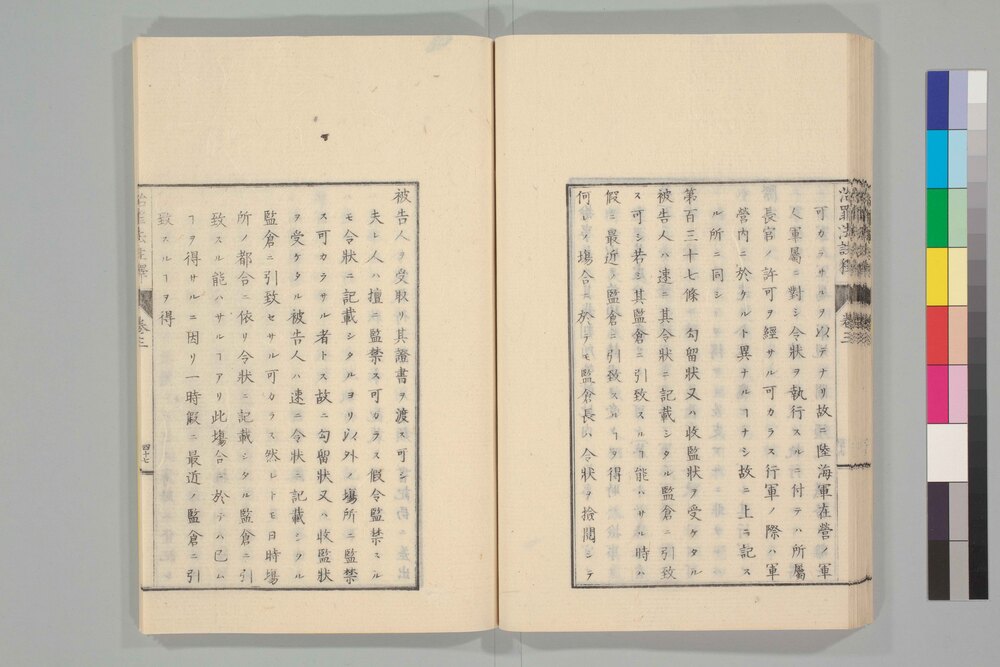 治罪法註釋 卷三
可カラサルヲ以テナリ故ニ陸海軍在營ノ軍
人軍屬ニ對シ令狀ヲ執行スルニ付テハ所屬
長官ノ許可ヲ經サル可カラス行軍ノ際ハ軍
營內ニ於ケルト異ナルヿナシ故ニ上ニ記ス
ル所ニ同シ
第百三十七條 勾留狀又ハ收監狀ヲ受ケタル
被告人ハ速ニ其令狀ニ記載シタル監倉ニ引致
ス可シ若シ其監倉ニ引致スルヿ能ハサル時ハ
假ニ最近ノ監倉ニ引致スルヿヲ得
何レノ塲合ニ於テモ監倉長ハ令狀ヲ撿閱シテ
被告人ヲ受取リ其證書ヲ渡ス可シ
夫レ人ハ擅ニ監禁ス可カラス假令監禁スル
モ令狀ニ記載シタルヨリ以外ノ塲所ニ監禁
ス可カラサル者トス故ニ勾留狀又ハ收監狀
ヲ受ケタル被告人ハ速ニ令狀ニ記載シタル
監倉ニ引致セサル可カラス然レトモ日時塲
所ノ都合ニ依リ令狀ニ記載シタル監倉ニ引
致スル能ハサルヿアリ此塲合ニ於テハ已ム
ヿヲ得サルニ因リ一時假ニ最近ノ監倉ニ引
致スルヿヲ得
治罪法註釋 卷三 四十七